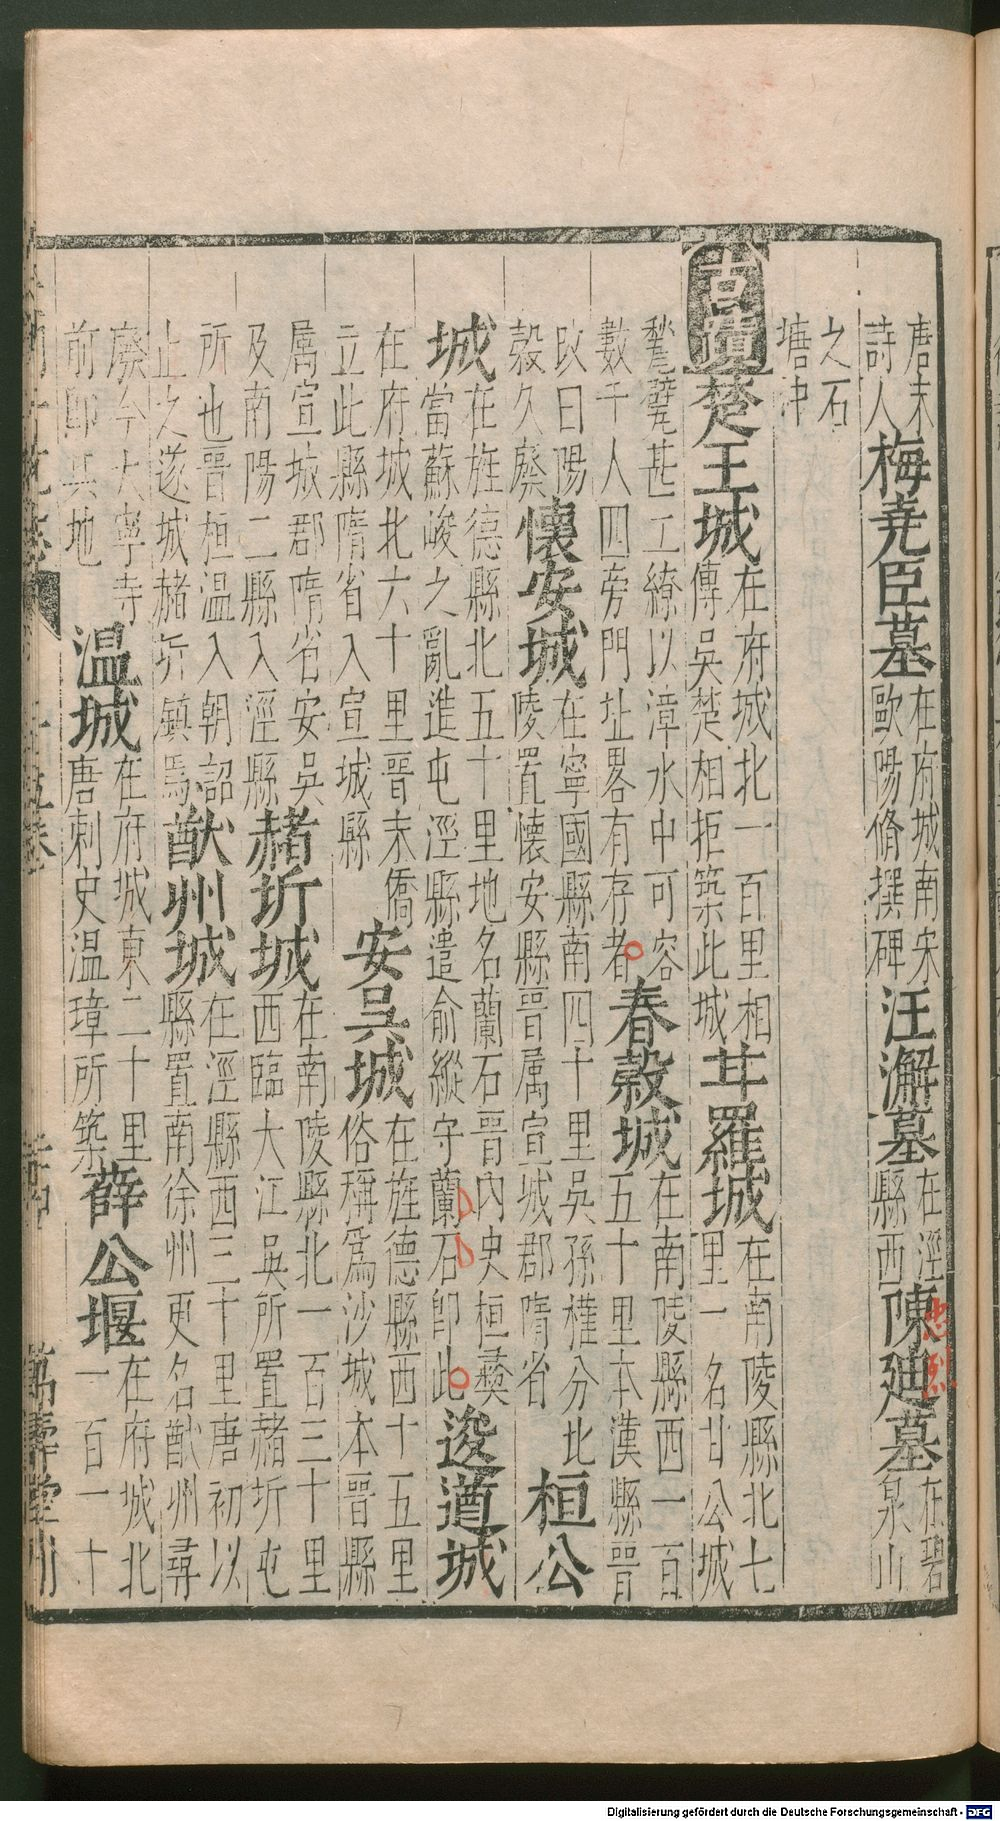 唐末詩人梅堯臣墓在府城南宋歐陽脩撰碑汪澥墓在涇縣西陳廸墓在碧泉山
忠烈
之石塘冲
古蹟楚王城在府城北一百里相傳吳楚相拒築此城茸羅城在南陵縣北七里一名甘公城
甃甓甚工繚以漳水中可容數千人四旁門址畧有存者春穀城在南陵縣西一百五十里本漢縣晉
改曰陽穀久廢懷安城在寧國縣南四十里吳孫權分比陵置懷安縣晉屬宣城郡隋省桓公
城在旌德縣北五十里地名蘭石晉內史桓彞當蘇峻之亂進屯涇縣遣俞縱守蘭石即此逡遒城
在府城北六十里晉末僑立此縣隋省入宣城縣安吳城在旌德縣西十五里俗稱爲沙城本晉縣
屬宣城郡隋省安吳及南陽二縣入涇縣赭圻城在南陵縣北一百三十里西臨大江吳所置赭圻屯
所也晉桓温入朝詔止之遂城赭圻鎮焉猷州城在涇縣西三十里唐初以縣置南徐州更名猷州尋
廢今大寧寺前即其地温城在府城東二十里唐刺史温璋所築薛公堰在府城北一百一十
萬壽堂刊
Digitalisierung gefördert durch die Deutsche Forschungsgemeinschaft - DFG